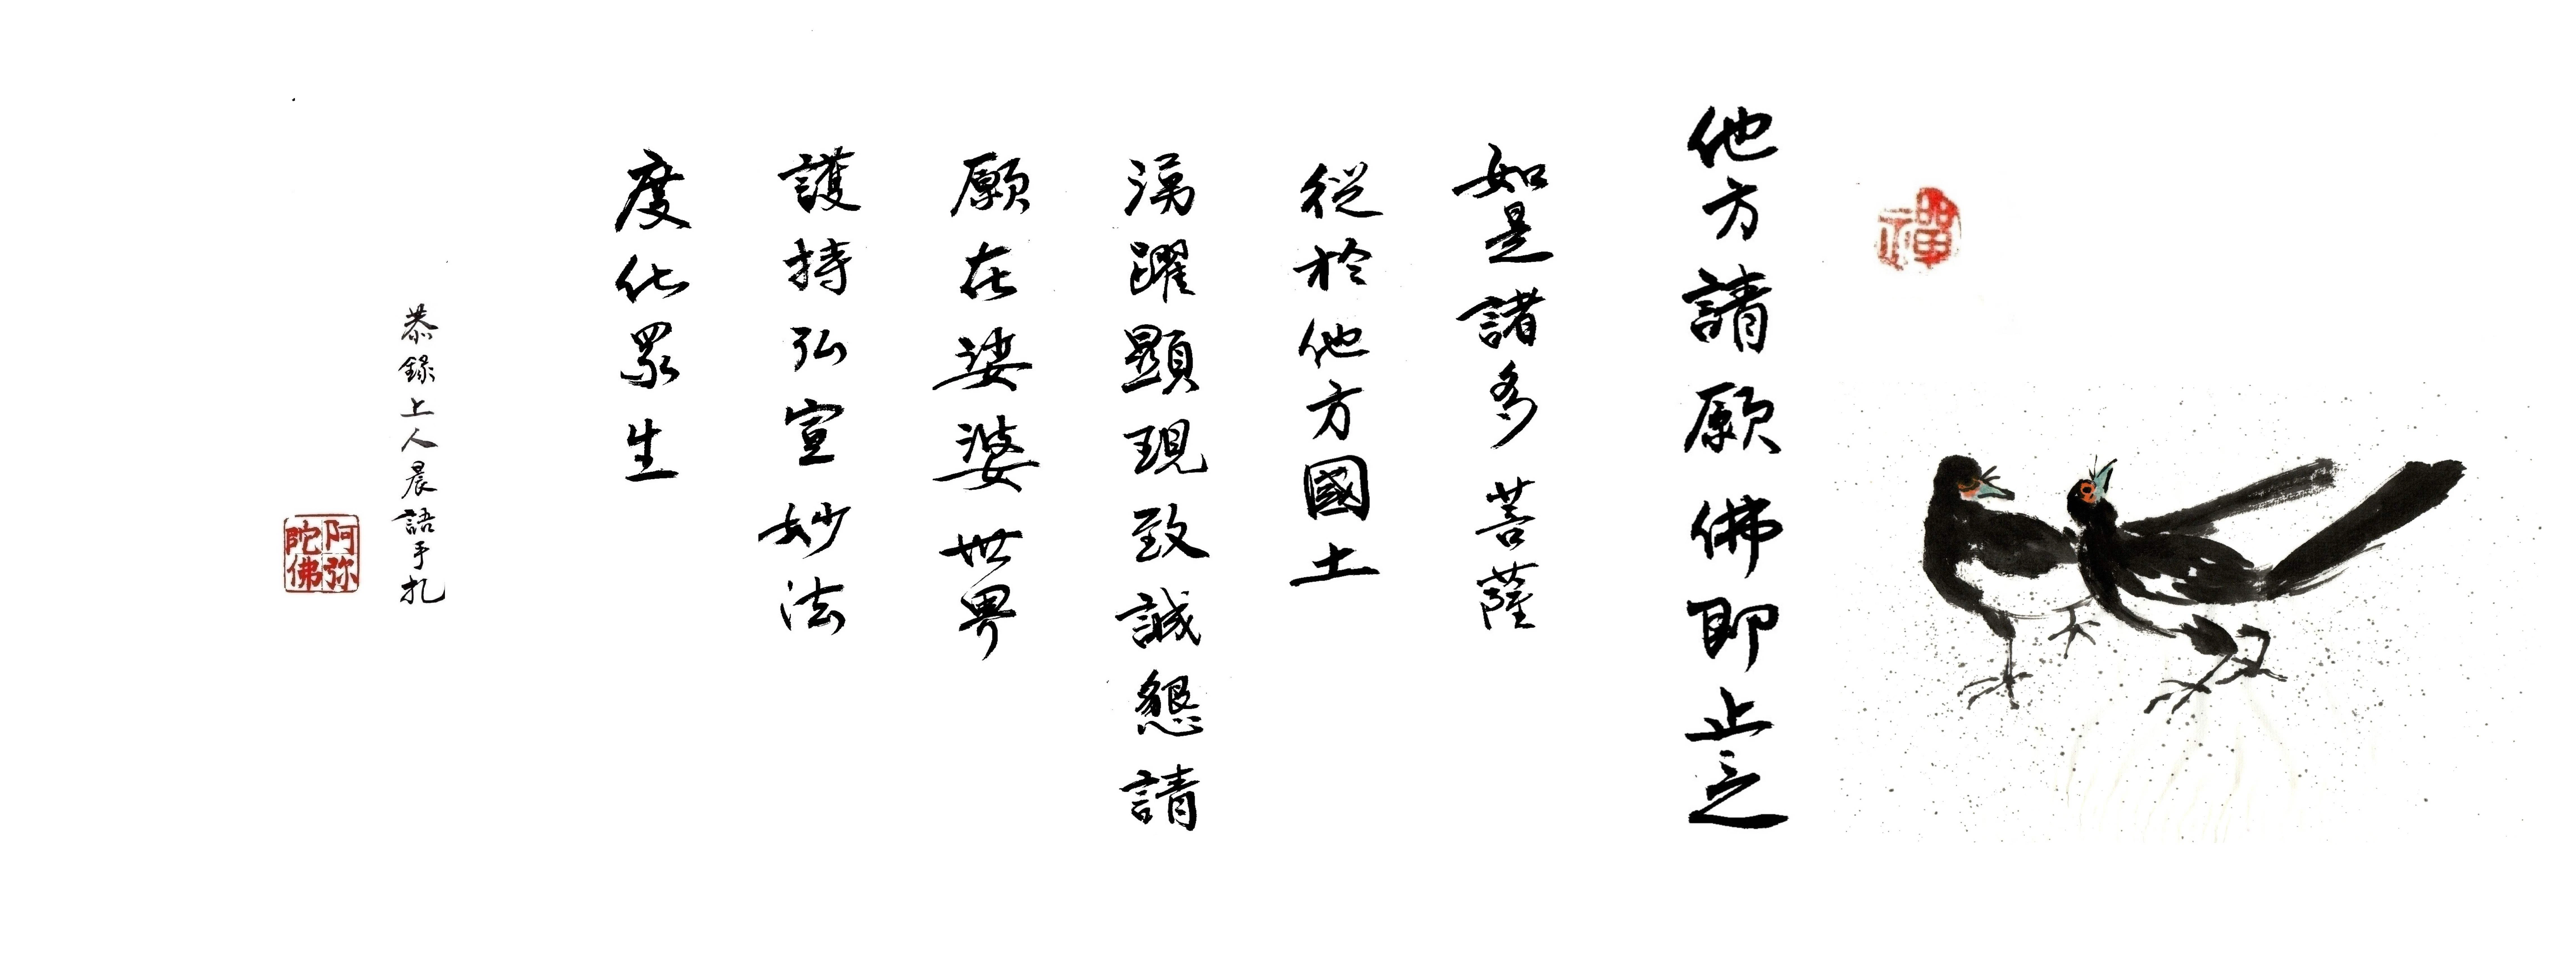 禪
他方請願佛即止之
如是諸多菩薩
從於他方國土
湧躍顯現致誠懇請
願在娑婆世界
護持弘宣妙法
度化眾生
恭錄上人晨語手札
阿弥陀佛